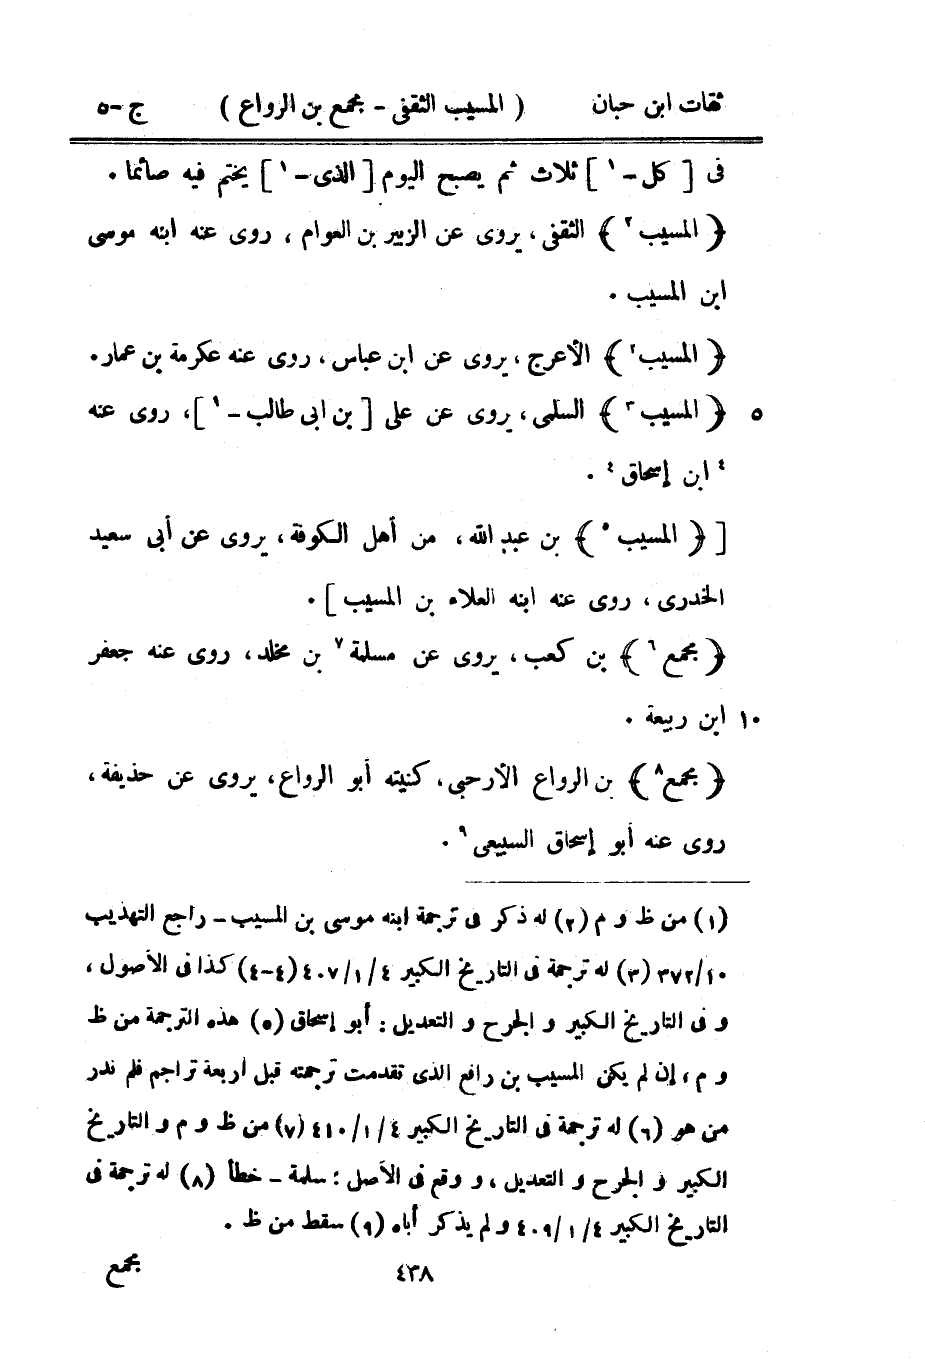 ثقات ابن حبان ( المسيب الثقفى - مجمع بن الرواع ) ج -٥
فى [ كل - ١ ] ثلاث ثم يصبح اليوم [ الذى - ١ ] يختم فيه صائما .
﴿ المسيب ٢ ﴾ الثقفى ، يروى عن الزبير بن العوام ، روى عنه ابنه موسى
ابن المسيب .
﴿ المسيب ٢ ﴾ الأعرج ، يروى عن ابن عباس ، روى عنه عكرمة بن عمار .
٥ ﴿ المسيب ٣ ﴾ السلمى ، يروى عن على [ بن ابى طالب - ١ ] ، روى عنه
٤ ابن إسحاق ٤ .
[ ﴿ المسيب ٥ ﴾ بن عبد الله ، من أهل الكوفة ، يروى عن أبى سعيد
الخدرى ، روى عنه ابنه العلاء بن المسيب ] .
﴿ مجمع ٦ ﴾ بن كعب ، يروى عن مسلمة ٧ بن مخلد ، روى عنه جعفر
١٠ ابن ربيعة .
﴿ مجمع ٨ ﴾ بن الرواع الأرحبى ، كنيته أبو الرواع ، يروى عن حذيفة ،
روى عنه أبو إسحاق السبيعى ٩ .
(١) من ظ و م (٢) له ذكر فى ترجمة ابنه موسى بن المسيب - راجع التهذيب
٣٧٢/١٠ (٣) له ترجمة فى التاريخ الكبير ٤ /١/ ٤٠٧ (٤-٤) كذا فى الأصول ،
و فى التاريخ الكبير و الجرح و التعديل : أبو إسحاق (٥) هذه الترجمة من ظ
و م ، إن لم يكن المسيب بن رافع الذى تقدمت ترجمته قبل أربعة تراجم فلم ندر
من هو (٦) له ترجمة فى التاريخ الكبير ٤ /١/ ٤١٠ (٧) من ظ و م و التاريخ
الكبير و الجرح و التعديل ، و وقع فى الأصل : سلمة - خطأ (٨) له ترجمة فى
التاريخ الكبير ٤ /١/ ٤٠٩ و لم يذكر أباه (٩) سقط من ظ .
٤٣٨ مجمع